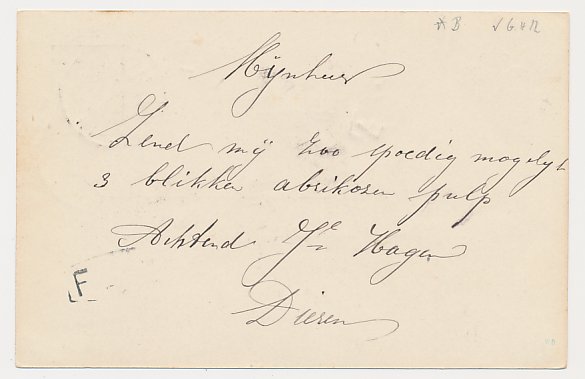 Mynheer
Zend mij zoo spoedig mogelijk
3 blikken abrikosen pulp
Achtend Hagen
Dieren
F